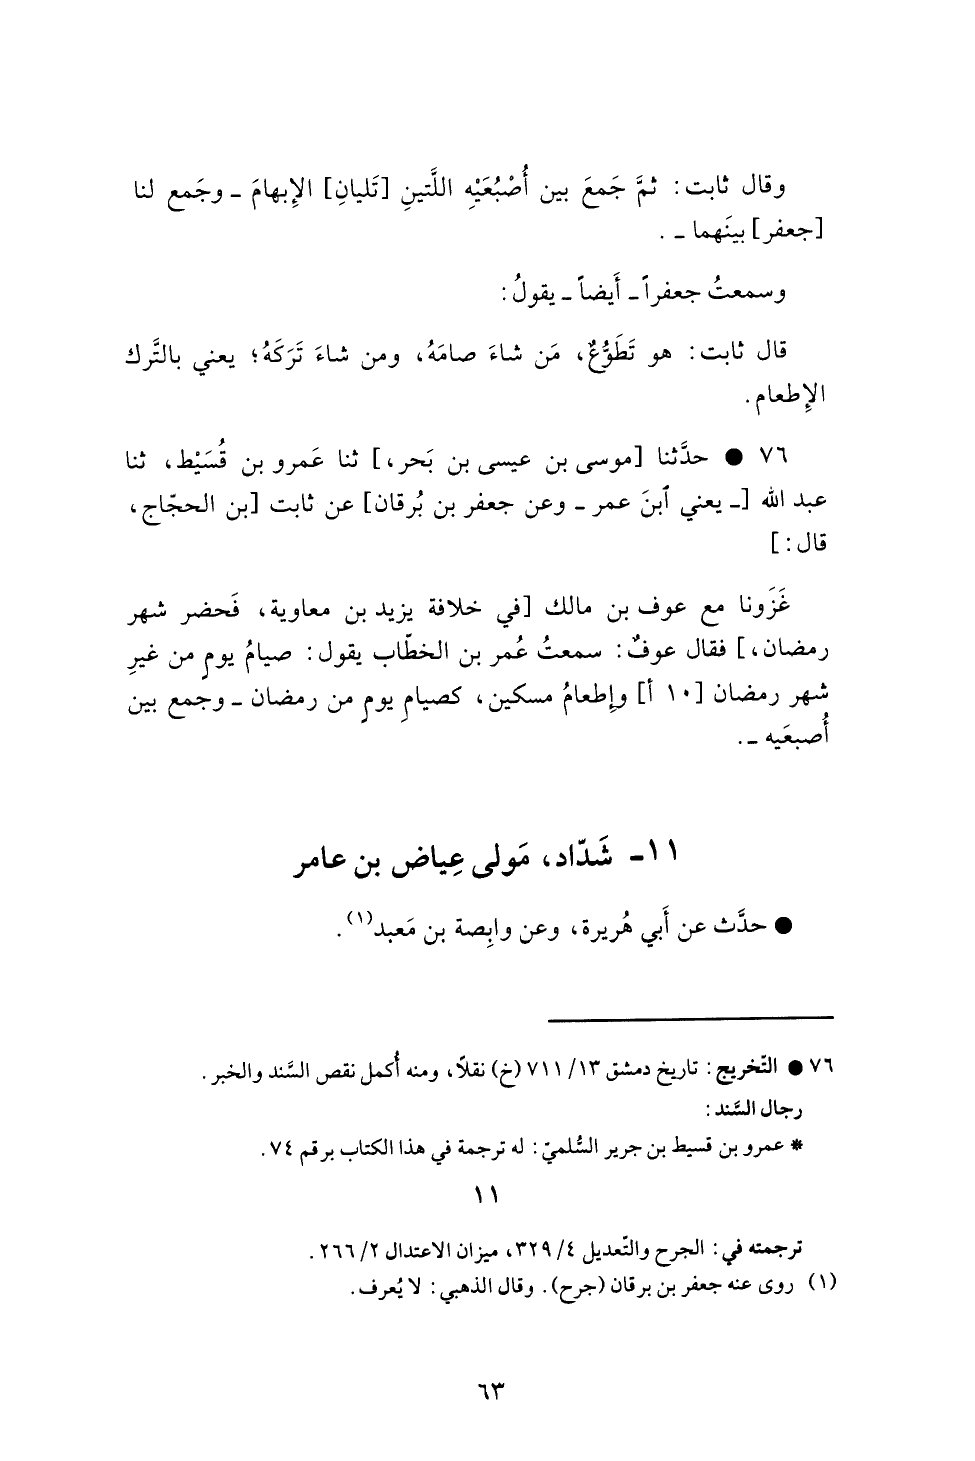 وقال ثابت: ثمَّ جَمعَ بين أُصْبُعَيْهِ اللَّتينِ [تَليانِ] الإِبهامَ ـ وجَمع لنا
[جعفر] بينَهما ـ .
وسمعتُ جعفراً ـ أَيضاً ـ يقولُ:
قال ثابت: هو تَطَوُّعٌ، مَن شاءَ صامَهُ، ومن شاءَ تَرَكَهُ؛ يعني بالتَّرك
الإِطعام.
٧٦ ● حدَّثنا [موسى بن عيسى بن بَحر،] ثنا عَمرو بن قُسَيْط، ثنا
عبد الله [ـ يعني ٱبنَ عمر ـ وعن جعفر بن بُرقان] عن ثابت [بن الحجّاج،
قال:]
غَزَونا مع عوف بن مالك [في خلافة يزيد بن معاوية، فَحضر شهر
رمضان،] فقال عوفٌ: سمعتُ عُمر بن الخطّاب يقول: صيامُ يومٍ من غيرِ
شهر رمضان [١٠ أ] وإِطعامُ مسكين، كصيامِ يومٍ من رمضان ـ وجمع بين
أُصبعَيه ـ.
١١- شَدّاد، مَولى عِياض بن عامر
● حدَّث عن أَبي هُريرة، وعن وابِصة بن مَعبد(١).
٧٦ ● التّخريج: تاريخ دمشق ١٣/ ٧١١ (خ) نقلاً، ومنه أُكمل نقص السَّند والخبر.
رجال السَّند:
* عمرو بن قسيط بن جرير السُّلميّ: له ترجمة في هذا الكتاب برقم ٧٤.
١١
ترجمته في: الجرح والتّعديل ٤/ ٣٢٩، ميزان الاعتدال ٢/ ٢٦٦.
(١) روى عنه جعفر بن برقان (جرح). وقال الذهبي: لا يُعرف.
٦٣